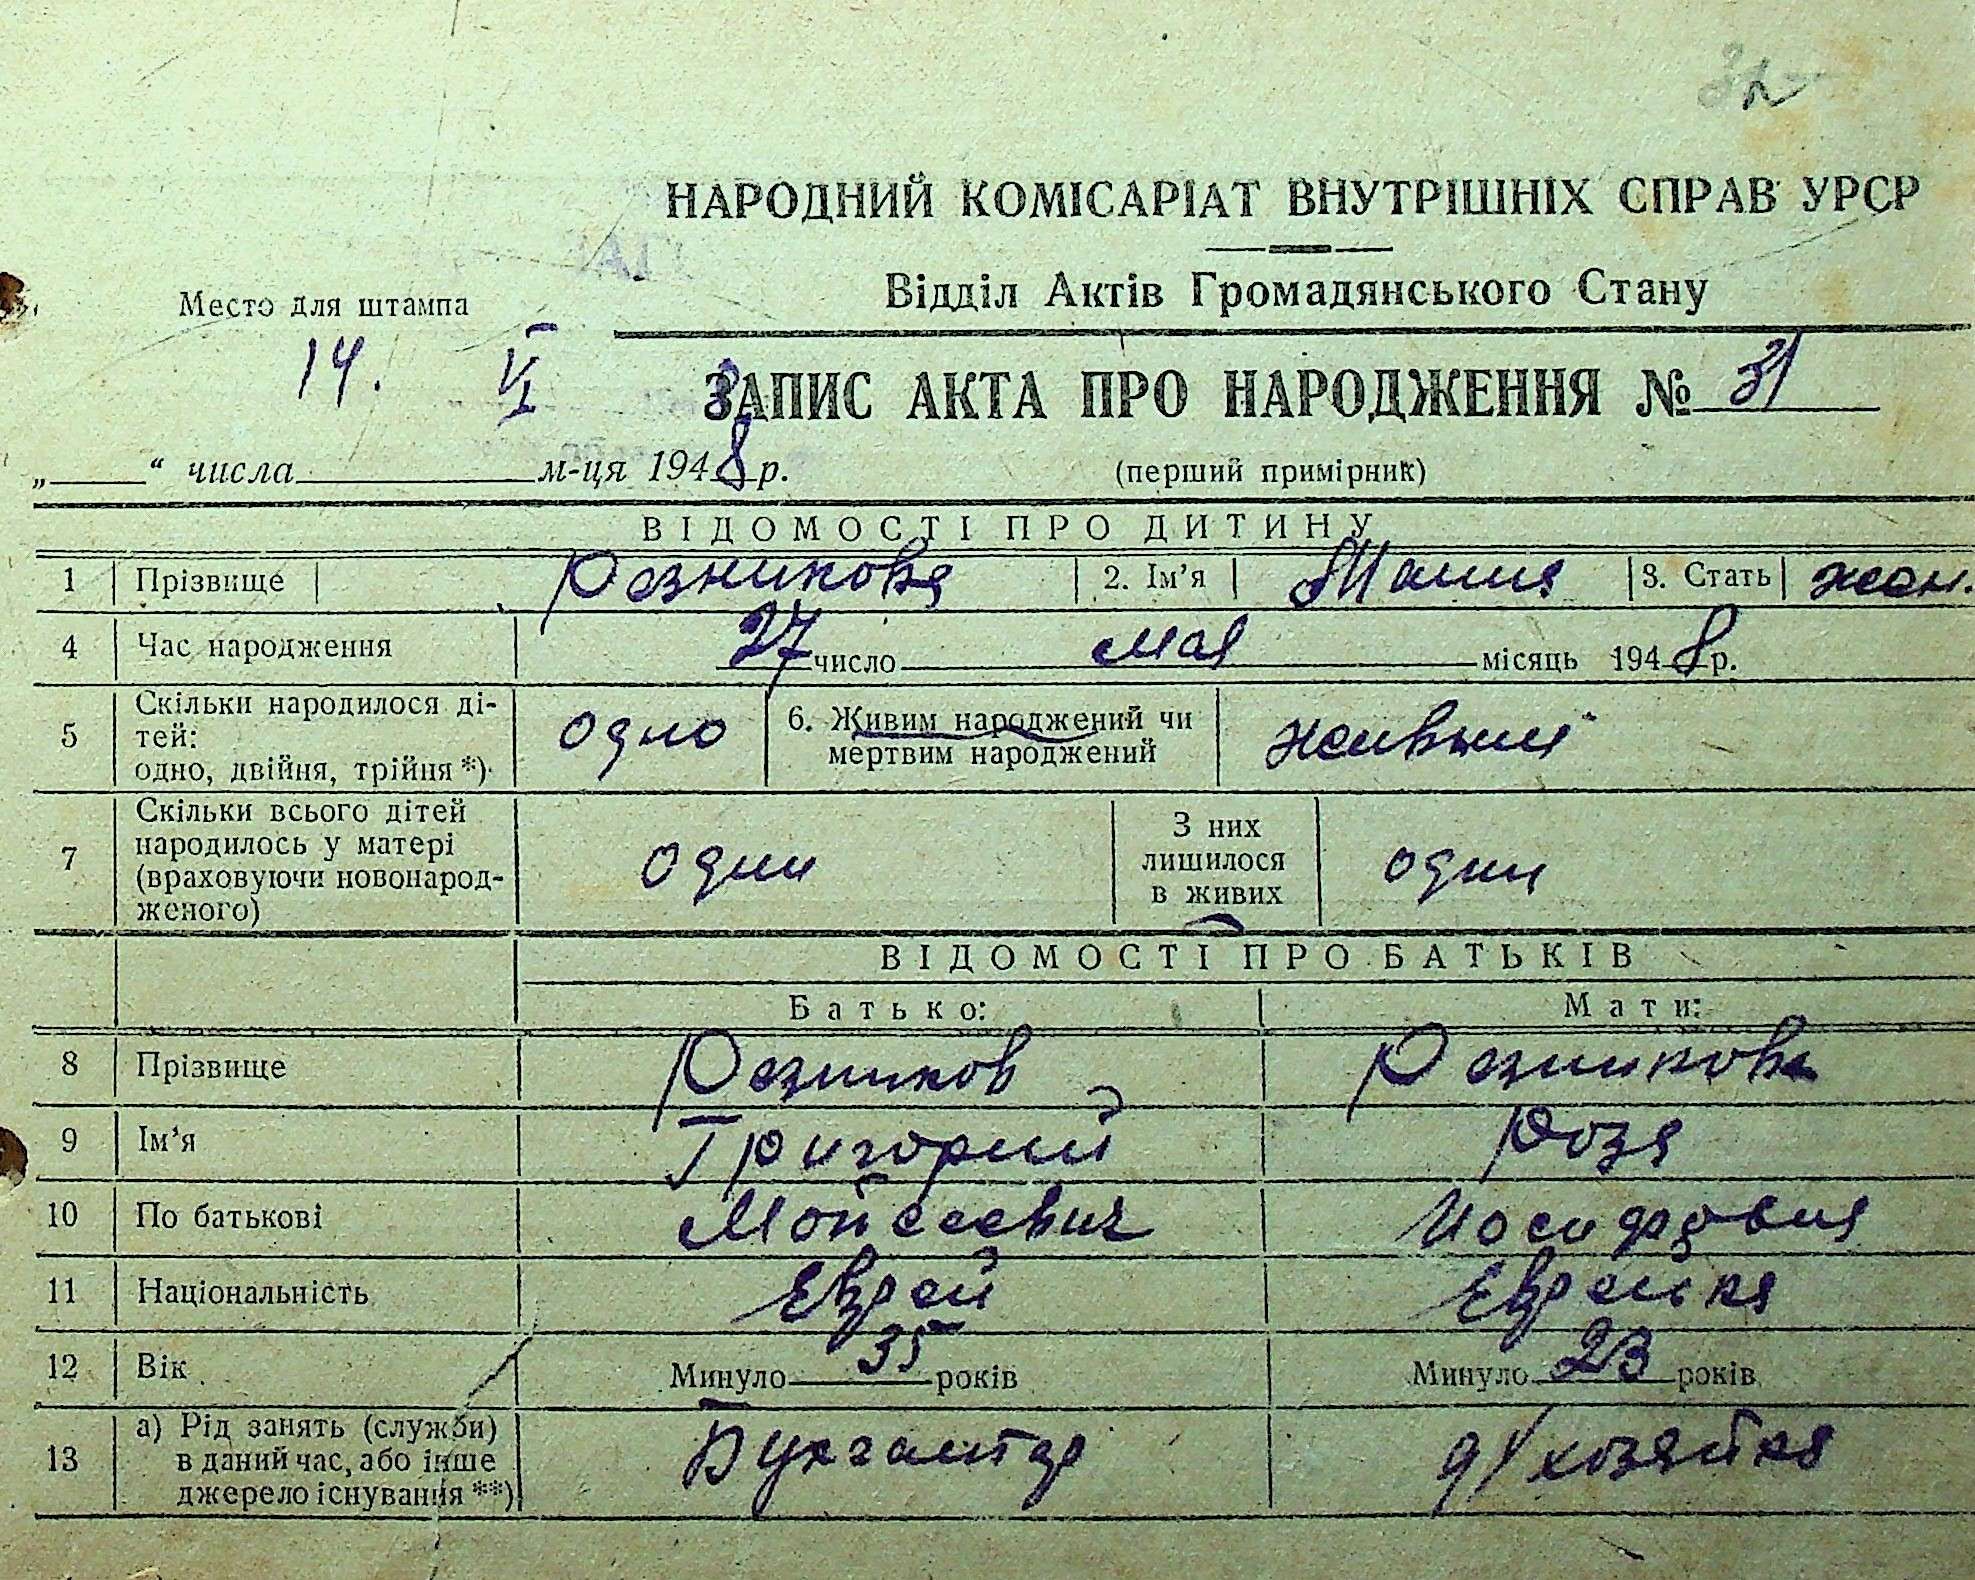 НАРОДНИЙ КОМІСАРІАТ ВНУТРІШНІХ СПРАВ УРСР
Відділ Актів Громадянського Стану
Место для штампа
14. VI
ЗАПИС АКТА ПРО НАРОДЖЕННЯ № 31
„ “ числа м-ця 1948 р.
(перший примірник)
ВІДОМОСТІ ПРО ДИТИНУ
1 Прізвище Резникова 2. Ім’я 3. Стать жен.
4 Час народження 27 число мая місяць 1948 р.
5 Скільки народилося ді-
тей:
одно, двійня, трійня *)
одно
6. Живим народжений чи
мертвим народжений
живым
7 Скільки всього дітей
народилось у матері
(враховуючи новонарод-
женого)
одни
З них
лишилося
в живих
одни
ВІДОМОСТІ ПРО БАТЬКІВ
Батько: Мати:
8 Прізвище Резников Резникова
9 Ім’я Григорий Роза
10 По батькові Мойсеевич Иосифовна
11 Національність Еврей Еврейка
12 Вік Минуло 35 років Минуло 23 років
13 а) Рід занять (служби)
в даний час, або інше
джерело існування **)
Бухгалтер д/хозяйка